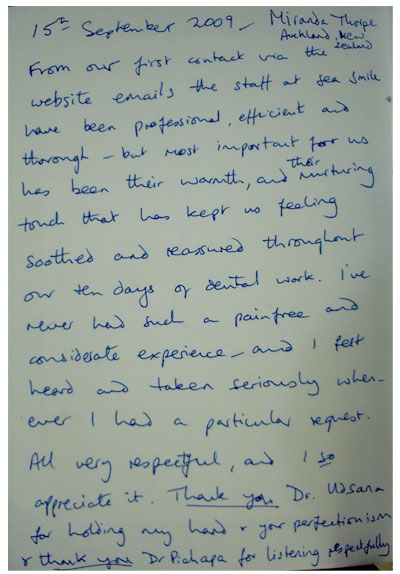 15th September 2009 - Miranda Thorpe
Auckland, New Zealand
From our first contact via the
website emails the staff at sea smile
have been professional, efficient and
thorough - but most important for us
has been their warmth, and their nurturing
touch that has kept us feeling
soothed and reassured throughout
our ten days of dental work. I've
never had such a painfree and
considerate experience - and I felt
heard and taken seriously when-
ever I had a particular request.
All very respectful, and I so
appreciate it. Thank you Dr. Udsana
for holding my hand & your perfectionism
& thank you Dr Pichapa for listening respectfully